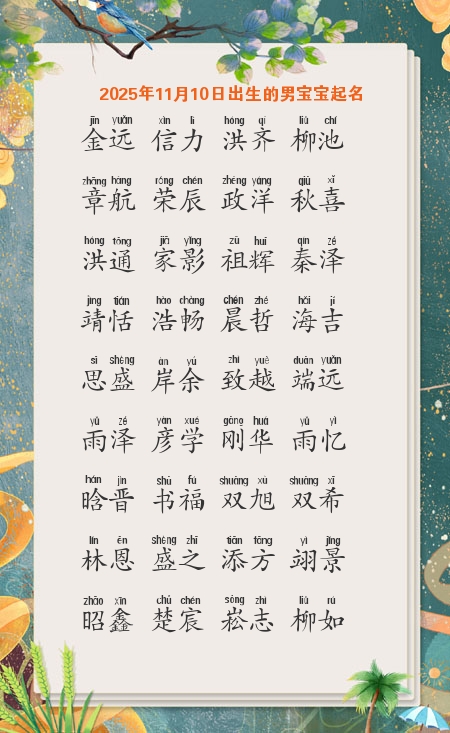 2025年11月10日出生的男宝宝起名
jīn yuǎn xìn lì hóng qí liǔ chí
金远 信力 洪齐 柳池
zhāng háng róng chén zhèng yáng qiū xǐ
章航 荣辰 政洋 秋喜
hóng tōng jiā yǐng zǔ huī qín zé
洪通 家影 祖辉 秦泽
jìng tián hào chàng chén zhé hǎi jí
靖恬 浩畅 晨哲 海吉
sī shèng àn yú zhì yuè duān yuǎn
思盛 岸余 致越 端远
yǔ zé yàn xué gāng huá yǔ yì
雨泽 彦学 刚华 雨忆
hán jìn shū fú shuāng xù shuāng xī
晗晋 书福 双旭 双希
lín ēn shèng zhī tiān fāng yì jǐng
林恩 盛之 添方 翊景
zhāo xīn chǔ chén sōng zhì liǔ rú
昭鑫 楚宸 崧志 柳如